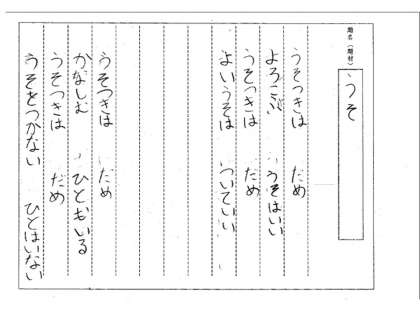 題名（題材）
うそ
うそつきは　だめ
よろこぶ　うそはいい
うそつきは　だめ
よいうそは　ついていい
うそつきは　だめ
かなしむ　ひともいる
うそつきは　だめ
うそをつかない　ひとはいない